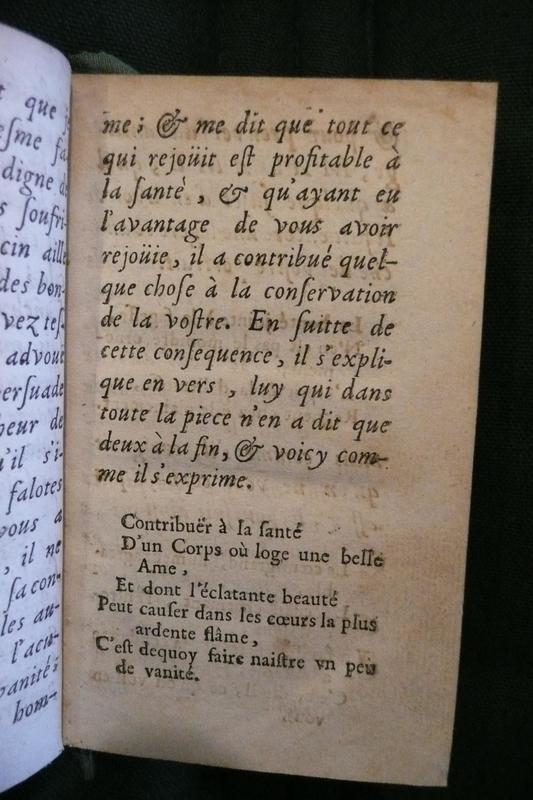 t que j
esme fa
digne de
s soufri-
cin aille
des bon-
vez tes-
advoue
ersuade
heur de
u'il s'i-
falotes
vous a
, il ne
sa con-
les au-
l'acu-
vanité;
hom-
me; & me dit que tout ce
qui rejoüit eſt profitable à
la ſanté, & qu'ayant eu
l'avantage de vous avoir
rejoüie, il a contribué quel-
que choſe à la conſervation
de la voſtre. En ſuitte de
cette conſequence, il s'expli-
que en vers, luy qui dans
toute la piece n'en a dit que
deux à la fin, & voicy com-
me il s'exprime.
Contribuër à la ſanté
D'un Corps où loge une belle
Ame,
Et dont l'éclatante beauté
Peut cauſer dans les cœurs la plus
ardente flâme,
C'eſt dequoy faire naiſtre vn peu
de vanité.